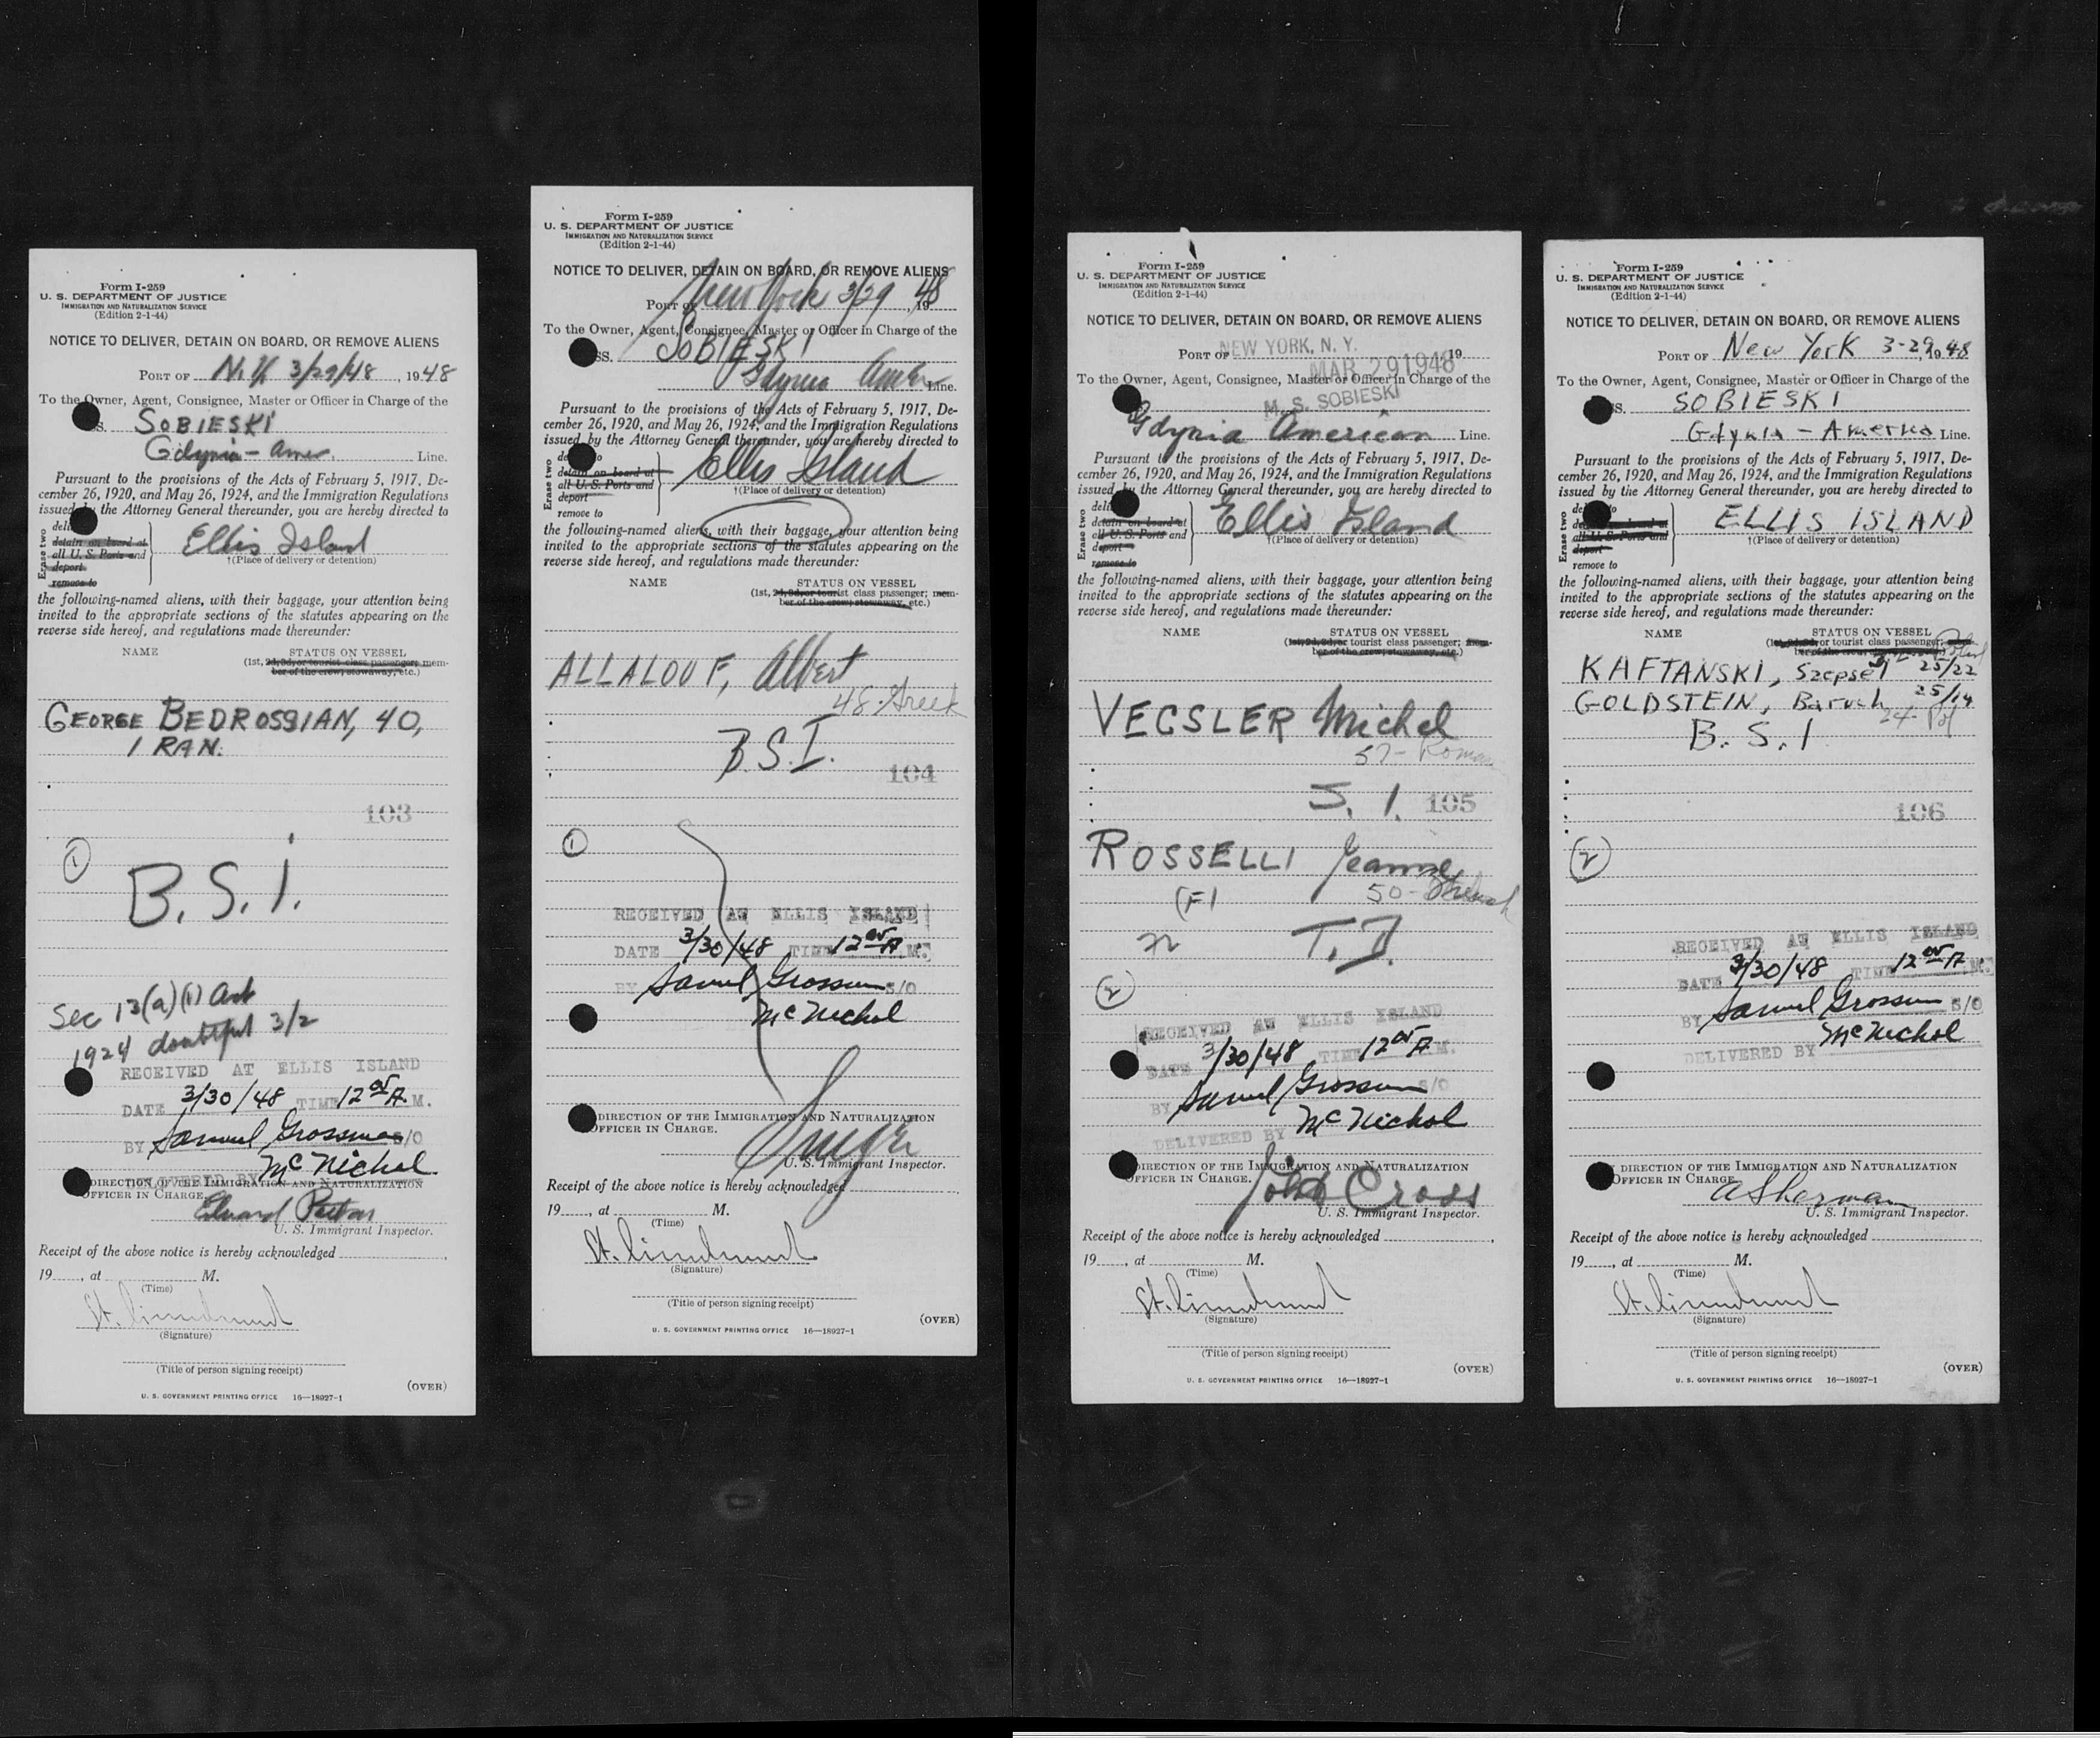 Form I-259
U. S. DEPARTMENT OF JUSTICE
IMMIGRATION AND NATURALIZATION SERVICE
(Edition 2-1-44)
NOTICE TO DELIVER, DETAIN ON BOARD, OR REMOVE ALIENS
PORT OF N.Y. 3/29/48, 1948
To the Owner, Agent, Consignee, Master or Officer in Charge of the
S. SOBIESKI
Gdynia - Amer. Line.
Pursuant to the provisions of the Acts of February 5, 1917, De-
cember 26, 1920, and May 26, 1924, and the Immigration Regulations
issued by the Attorney General thereunder, you are hereby directed to
Erase two
detain on board at
all U. S. Ports and
deport
remove to
Ellis Island
†(Place of delivery or detention)
the following-named aliens, with their baggage, your attention being
invited to the appropriate sections of the statutes appearing on the
reverse side hereof, and regulations made thereunder:
NAME STATUS ON VESSEL
(1st, 2d, 3d, or tourist class passenger; mem-
ber of the crew; stowaway, etc.)
GEORGE BEDROSSIAN, 40,
IRAN.
103
1
B.S.I.
Sec 13(a)(1) Act
1924 doubtful 3/2
RECEIVED AT ELLIS ISLAND
DATE 3/30/48 TIME 12 05 A.M.
BY Samuel Grossman S/O
DELIVERED BY McNichol
DIRECTION OF THE IMMIGRATION AND NATURALIZATION
OFFICER IN CHARGE.
Edward
U. S. Immigrant Inspector.
Receipt of the above notice is hereby acknowledged
19, at M.
(Time)
(Signature)
(Title of person signing receipt)
(OVER)
U. S. GOVERNMENT PRINTING OFFICE 16—18927-1
Form I-259
U. S. DEPARTMENT OF JUSTICE
IMMIGRATION AND NATURALIZATION SERVICE
(Edition 2-1-44)
NOTICE TO DELIVER, DETAIN ON BOARD, OR REMOVE ALIENS
PORT OF New York 3/29, 1948
To the Owner, Agent, Consignee, Master or Officer in Charge of the
SS. SOBIESKI
Gdynia Amer Line.
Pursuant to the provisions of the Acts of February 5, 1917, De-
cember 26, 1920, and May 26, 1924, and the Immigration Regulations
issued by the Attorney General thereunder, you are hereby directed to
Erase two
detain on board at
all U. S. Ports and
deport
remove to
Ellis Island
†(Place of delivery or detention)
the following-named aliens, with their baggage, your attention being
invited to the appropriate sections of the statutes appearing on the
reverse side hereof, and regulations made thereunder:
NAME STATUS ON VESSEL
(1st, 2d, 3d, or tourist class passenger; mem-
ber of the crew; stowaway, etc.)
ALLALOUF, Albert
48 - Greek
B.S.I.
104
1
RECEIVED AT ELLIS ISLAND
DATE 3/30/48 TIME 12 05 A.M.
BY Samuel Grossman S/O
McNichol
DIRECTION OF THE IMMIGRATION AND NATURALIZATION
OFFICER IN CHARGE.
U. S. Immigrant Inspector.
Receipt of the above notice is hereby acknowledged
19, at M.
(Time)
(Signature)
(Title of person signing receipt)
(OVER)
U. S. GOVERNMENT PRINTING OFFICE 16—18927-1
Form I-259
U. S. DEPARTMENT OF JUSTICE
IMMIGRATION AND NATURALIZATION SERVICE
(Edition 2-1-44)
NOTICE TO DELIVER, DETAIN ON BOARD, OR REMOVE ALIENS
PORT OF NEW YORK, N. Y. 19
MAR 29 1948
To the Owner, Agent, Consignee, Master or Officer in Charge of the
M. S. SOBIESKI
Gdynia American Line.
Pursuant to the provisions of the Acts of February 5, 1917, De-
cember 26, 1920, and May 26, 1924, and the Immigration Regulations
issued by the Attorney General thereunder, you are hereby directed to
Erase two
detain on board at
all U. S. Ports and
deport
remove to
Ellis Island
†(Place of delivery or detention)
the following-named aliens, with their baggage, your attention being
invited to the appropriate sections of the statutes appearing on the
reverse side hereof, and regulations made thereunder:
NAME STATUS ON VESSEL
(1st, 2d, 3d, or tourist class passenger; mem-
ber of the crew; stowaway, etc.)
VECSLER Michel
57 - Roman
S. I. 105
ROSSELLI Jeanne
(F) 50 - French
T.D.
2
RECEIVED AT ELLIS ISLAND
DATE 3/30/48 TIME 12 05 A.M.
BY Samuel Grossman S/O
McNichol
DELIVERED BY
DIRECTION OF THE IMMIGRATION AND NATURALIZATION
OFFICER IN CHARGE.
John Cross
U. S. Immigrant Inspector.
Receipt of the above notice is hereby acknowledged
19, at M.
(Time)
(Signature)
(Title of person signing receipt)
(OVER)
U. S. GOVERNMENT PRINTING OFFICE 16—18927-1
Form I-259
U. S. DEPARTMENT OF JUSTICE
IMMIGRATION AND NATURALIZATION SERVICE
(Edition 2-1-44)
NOTICE TO DELIVER, DETAIN ON BOARD, OR REMOVE ALIENS
PORT OF New York 3-29, 1948
To the Owner, Agent, Consignee, Master or Officer in Charge of the
S. SOBIESKI
Gdynia - America Line.
Pursuant to the provisions of the Acts of February 5, 1917, De-
cember 26, 1920, and May 26, 1924, and the Immigration Regulations
issued by the Attorney General thereunder, you are hereby directed to
Erase two
detain on board at
all U. S. Ports and
deport
remove to
ELLIS ISLAND
†(Place of delivery or detention)
the following-named aliens, with their baggage, your attention being
invited to the appropriate sections of the statutes appearing on the
reverse side hereof, and regulations made thereunder:
NAME STATUS ON VESSEL
(1st, 2d, 3d, or tourist class passenger; mem-
ber of the crew; stowaway, etc.)
KAFTANSKI, Szepsel 25/22
GOLDSTEIN, Baruch 25/14
24 - Pol
B. S. I
106
2
RECEIVED AT ELLIS ISLAND
DATE 3/30/48 TIME 12 05 A.M.
BY Samuel Grossman S/O
McNichol
DELIVERED BY
DIRECTION OF THE IMMIGRATION AND NATURALIZATION
OFFICER IN CHARGE.
A Sherman
U. S. Immigrant Inspector.
Receipt of the above notice is hereby acknowledged
19, at M.
(Time)
(Signature)
(Title of person signing receipt)
(OVER)
U. S. GOVERNMENT PRINTING OFFICE 16—18927-1